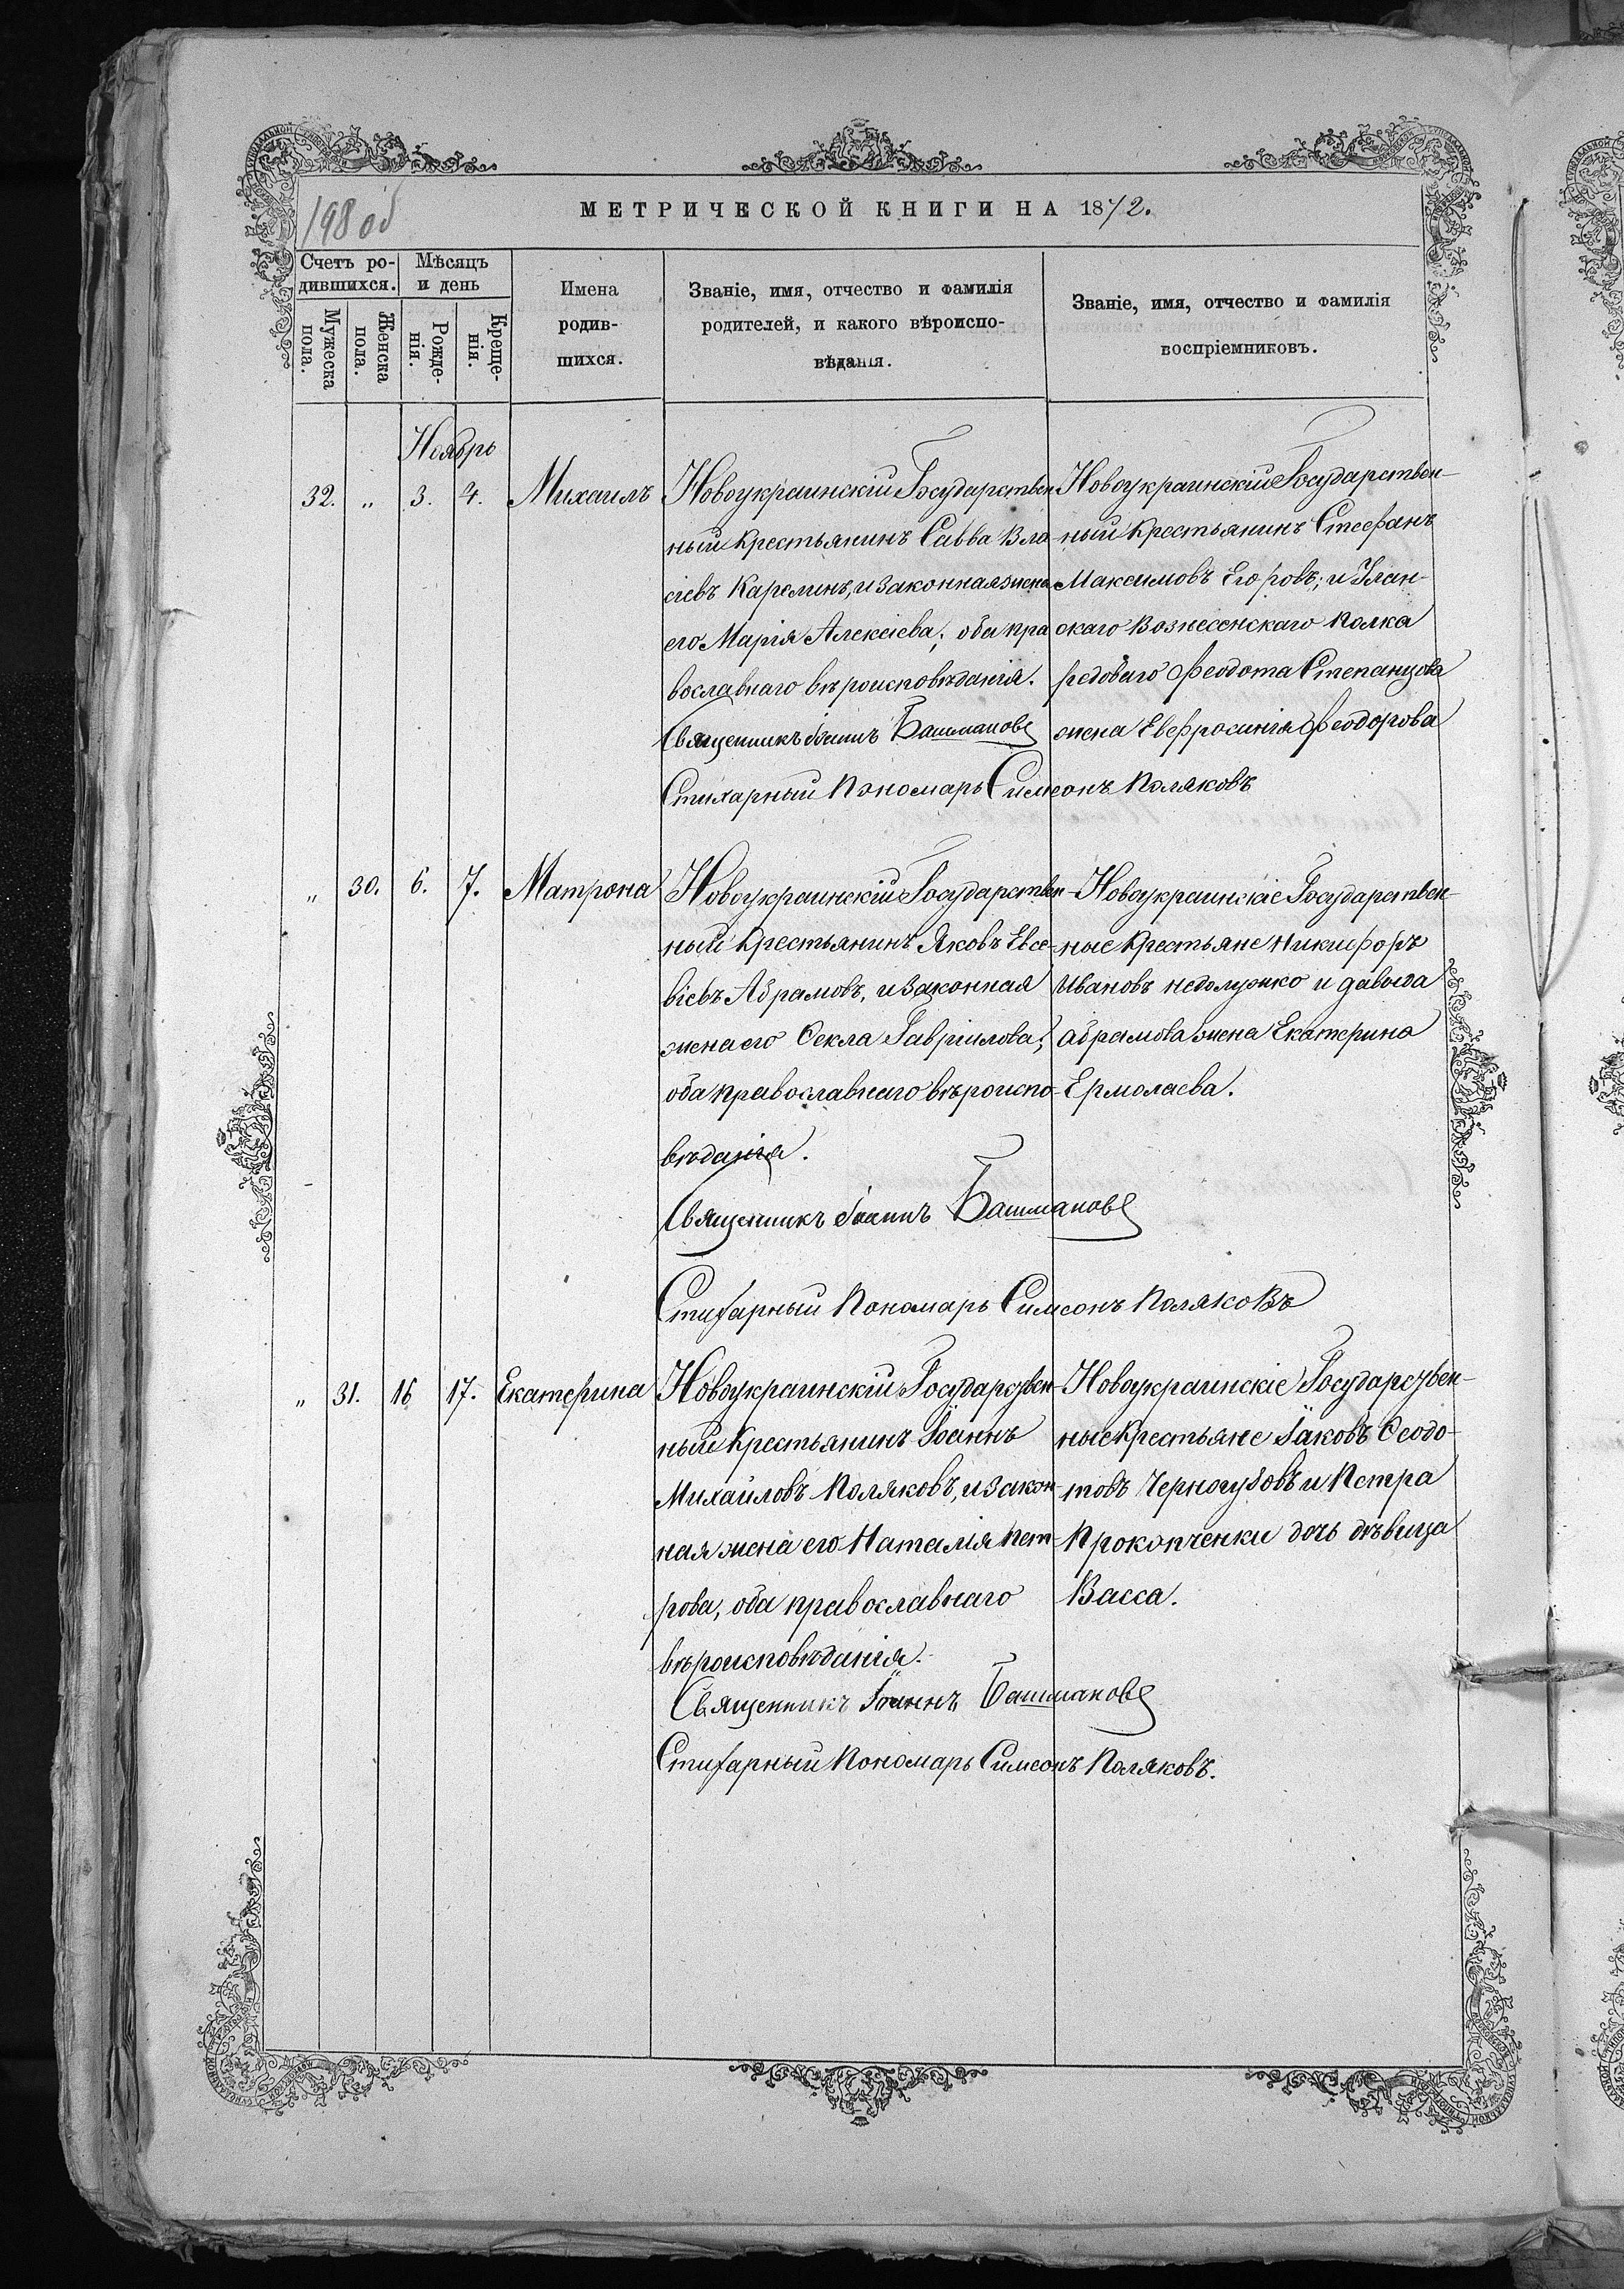 198 об
МЕТРИЧЕСКОЙ КНИГИ НА 1872.
Счетъ ро-
дившихся.
Мѣсяцъ
и день
Мужеска
пола.
Женска
пола.
Рожде-
нія.
Креще-
нія.
Имена
родив-
шихся.
Званіе, имя, отчество и фамилія
родителей, и какого вѣроиспо-
вѣданія.
Званіе, имя, отчество и фамилія
воспріемниковъ.
Ноябрь
32. „ 3. 4. Михаилъ
Новоукраинскій Государствен
ный крестьянинъ Савва Вла
сіевъ Карелинъ, и законная жена
его Марія Алексіева; оба пра
вославнаго вѣроисповѣданія.
Священникъ Іоаннъ Башмаковъ
Стихарный Пономарь Симеонъ Поляковъ
Новоукраинскій Государствен-
ный крестьянинъ Стефанъ
Максимовъ Егоровъ; и Улан-
скаго Вознесенскаго полка
рядоваго Феодота Степанцова
жена Евфросинія Феодорова
„ 30. 6. 7. Матрона
Новоукраинскій Государствен-
ный крестьянинъ Яковъ Евсе-
віевъ Абрамовъ, и законная
жена его Ѳекла Гавріилова;
оба православнаго вѣроиспо-
вѣданія.
Священникъ Іоаннъ Башмаковъ
Стихарный Пономарь Симеонъ Поляковъ
Новоукраинскіе Государствен-
ные крестьяне Никифоръ
Ивановъ Недолужко и Давыда
Абрамова жена Екатерина
Ермолаева.
„ 31. 16 17. Екатерина
Новоукраинскій Государствен-
ный крестьянинъ Іоаннъ
Михаиловъ Поляковъ, и закон-
ная жена его Наталія Пет-
рова, оба православнаго
вѣроисповѣданія.
Священникъ Іоаннъ Башмаковъ
Стихарный Пономарь Симеонъ Поляковъ.
Новоукраинскіе Государствен-
ные крестьяне Іаковъ Ѳеодо-
товъ Черногубовъ и Петра
Прокопченки дочь дѣвица
Васса.